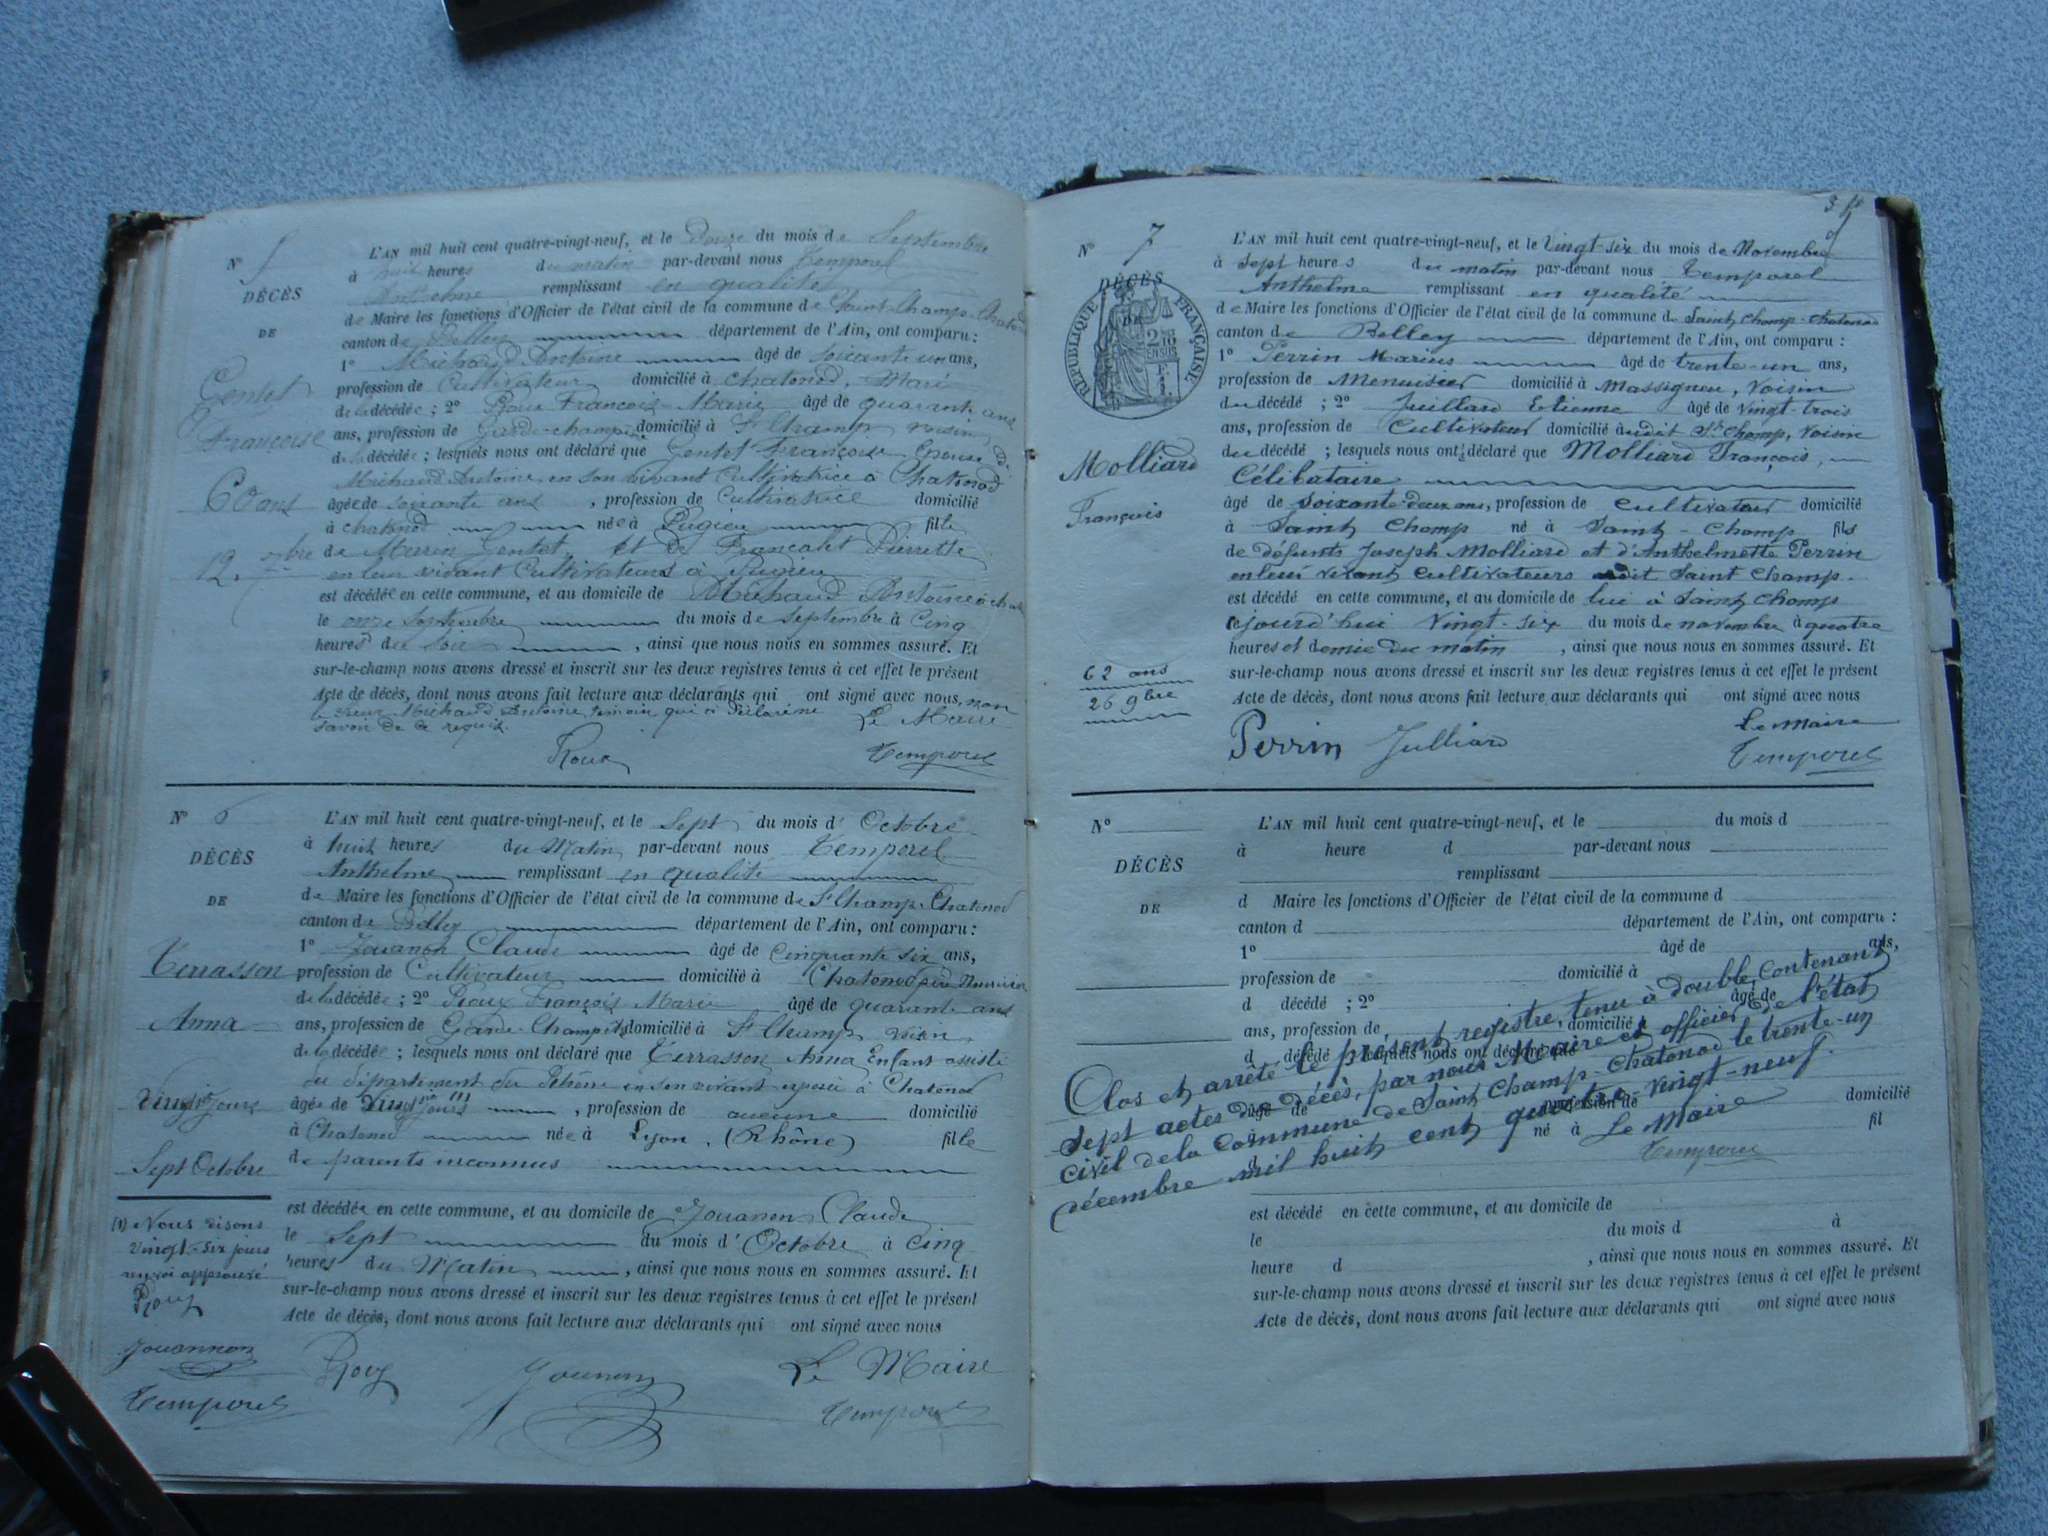 Nº 5
DÉCÈS
DE
Gentet
Françoise
60 ans
12. 7bre
L'AN mil huit cent quatre-vingt-neuf, et le Douze du mois de Septembre
à huit heures du matin par-devant nous Temporel
Anthelme remplissant en qualité
de Maire les fonctions d'Officier de l'état civil de la commune de Saint-Champ-Chatonod
canton de Belley département de l'Ain, ont comparu :
1º Michaud Antoine âgé de soixante un ans,
profession de Cultivateur domicilié à Chatonod, Mari
de la décédée ; 2º Roux François-Marie âgé de quarante ans
ans, profession de Garde-champêtre domicilié à St Champ voisin
de la décédée ; lesquels nous ont déclaré que Gentet Françoise Epouse de
Michaud Antoine en son vivant Cultivatrice à Chatonod
âgée de soixante ans , profession de Cultivatrice domicilié
à Chatonod née à Pugieu fille
de Marin Gentet et de Francalet Pierrette
en leur vivant Cultivateurs à Pugieu
est décédée en cette commune, et au domicile de Michaud Antoine à
le onze Septembre du mois de Septembre à Cinq
heures du soir , ainsi que nous nous en sommes assuré. Et
sur-le-champ nous avons dressé et inscrit sur les deux registres tenus à cet effet le présent
Acte de décès, dont nous avons fait lecture aux déclarants qui ont signé avec nous, non
le sieur Michaud Antoine témoin qui a déclaré ne
savoir de ce requis. Le Maire
Roux Temporel
Nº 6
DÉCÈS
DE
Terrasson
Anna
Vingt jours
Sept Octobre
(1) Nous disons
vingt-six jours
renvoi approuvé
Roux
Jouannon
Temporel
L'AN mil huit cent quatre-vingt-neuf, et le Sept du mois d' Octobre
à huit heures du Matin par-devant nous Temporel
Anthelme remplissant en qualité
de Maire les fonctions d'Officier de l'état civil de la commune de St Champ-Chatonod
canton de Belley département de l'Ain, ont comparu :
1º Jouanon Claude âgé de Cinquante six ans,
profession de Cultivateur domicilié à Chatonod père Nourricier
de la décédée ; 2º Roux François Marie âgé de quarante ans
ans, profession de Garde-Champêtre domicilié à St Champ voisin
de la décédée ; lesquels nous ont déclaré que Terrasson Anna Enfant assisté
du département du Rhône en son vivant à Chatonod
âgée de Vingt jours (1) , profession de aucune domicilié
à Chatonod née à Lyon, (Rhône) fille
de parents inconnus
est décédée en cette commune, et au domicile de Jouanon Claude
le Sept du mois d' Octobre à Cinq
heures du Matin , ainsi que nous nous en sommes assuré. Et
sur-le-champ nous avons dressé et inscrit sur les deux registres tenus à cet effet le présent
Acte de décès, dont nous avons fait lecture aux déclarants qui ont signé avec nous
Le Maire
Roux Jouanon Temporel
Nº 7
DÉCÈS
DE
RÉPUBLIQUE FRANÇAISE
Molliard
François
62 ans
26 9bre
L'AN mil huit cent quatre-vingt-neuf, et le Vingt-six du mois de Novembre
à Sept heures du matin par-devant nous Temporel
Anthelme remplissant en qualité
de Maire les fonctions d'Officier de l'état civil de la commune de Saint Champ-Chatonod
canton de Belley département de l'Ain, ont comparu :
1º Perrin Marius âgé de trente-un ans,
profession de Menuisier domicilié à Massigneu, Voisin
du décédé ; 2º Juillard Etienne âgé de vingt-trois
ans, profession de Cultivateur domicilié àudit St Champ, voisin
du décédé ; lesquels nous ont déclaré que Molliard François,
Célibataire
âgé de soixante-deux ans, profession de cultivateur domicilié
à Saint Champ né à Saint-Champ fils
de défunts Joseph Molliard et d'Anthelmette Perrin
en leur vivant cultivateurs audit Saint Champ.
est décédé en cette commune, et au domicile de lui à Saint Champ
cejourd'hui Vingt-six du mois de novembre à quatre
heures et demie du matin , ainsi que nous nous en sommes assuré. Et
sur-le-champ nous avons dressé et inscrit sur les deux registres tenus à cet effet le présent
Acte de décès, dont nous avons fait lecture aux déclarants qui ont signé avec nous
Le Maire
Perrin Julliard Temporel
Nº
DÉCÈS
DE
L'AN mil huit cent quatre-vingt-neuf, et le du mois d
à heure d par-devant nous
remplissant
d Maire les fonctions d'Officier de l'état civil de la commune d
canton d département de l'Ain, ont comparu :
1º âgé de ans,
profession de domicilié à
d décédé ; 2º âgé de
ans, profession de domicilié à
d décédé ; lesquels nous ont déclaré que
Clos et arrêté le présent registre, tenu à double, contenant
Sept actes de Décès, par nous Maire et officier de l'état
civil de la Commune de Saint Champ-Chatonod le trente-un
décembre mil huit cent quatre-vingt-neuf.
Le Maire
Temporel
âgé de profession de domicilié
à né à fil
d
est décédé en cette commune, et au domicile de
le du mois d à
heure d , ainsi que nous nous en sommes assuré. Et
sur-le-champ nous avons dressé et inscrit sur les deux registres tenus à cet effet le présent
Acte de décès, dont nous avons fait lecture aux déclarants qui ont signé avec nous